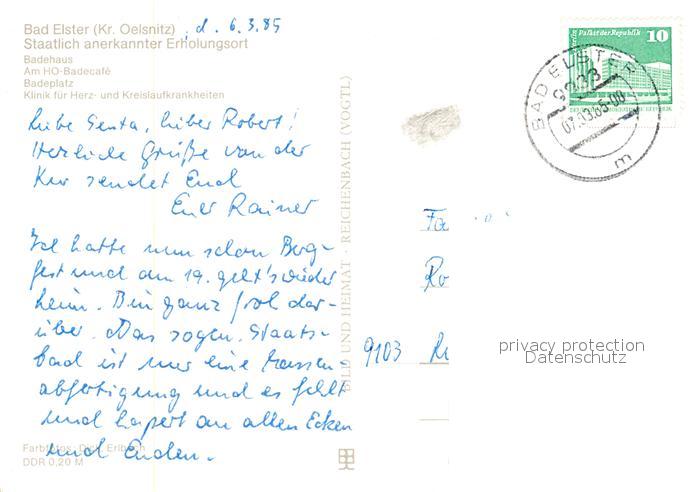 Bad Elster (Kr. Oelsnitz) , d. 6.3.85
Staatlich anerkannter Erholungsort
Badehaus
Am HO-Badecafé
Badeplatz
Klinik für Herz- und Kreislaufkrankheiten
Liebe Senta, lieber Robert!
Herzliche Grüße von der
Kur sendet Euch
Euer Rainer
Ich hatte nun schon Berg-
fest und am 19. geht's wieder
heim. Bin ganz froh dar-
über. Das sogen. Staats-
bad ist nur eine Massen-
abfertigung und es fehlt
und hapert an allen Ecken
und Enden.
Farbfotos: Dick, Erlbach
DDR 0,20 M
BILD UND HEIMAT · REICHENBACH (VOGTL)
Berlin Palast der Republik 10
BAD ELSTER
9933
07.03.85-00
m
Fa
Ro
9103
privacy protection
Datenschutz